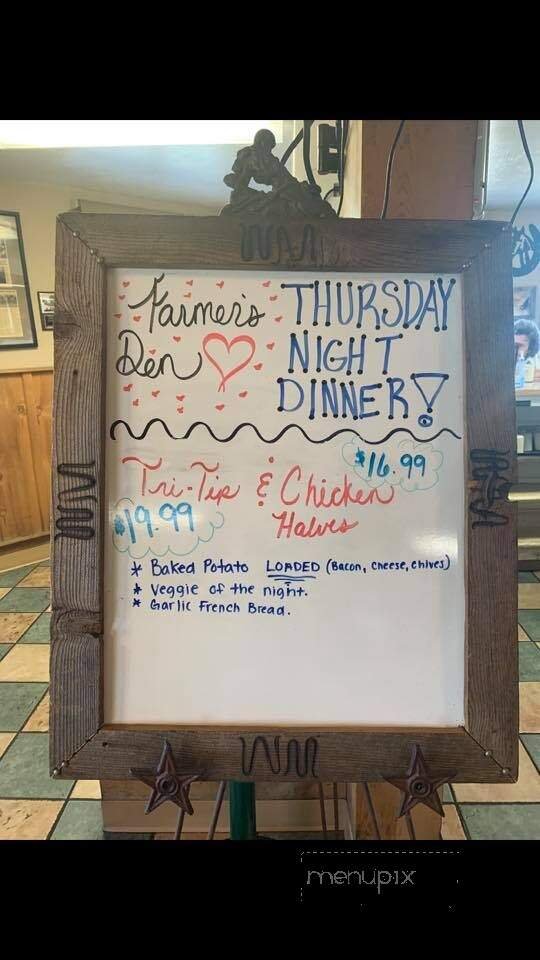 Farmer's THURSDAY
Den NIGHT
DINNER!
$16.99
Tri-Tip & Chicken
$19.99 Halves
* Baked Potato LOADED (Bacon, cheese, chives)
* Veggie of the night.
* Garlic French Bread.
menupix